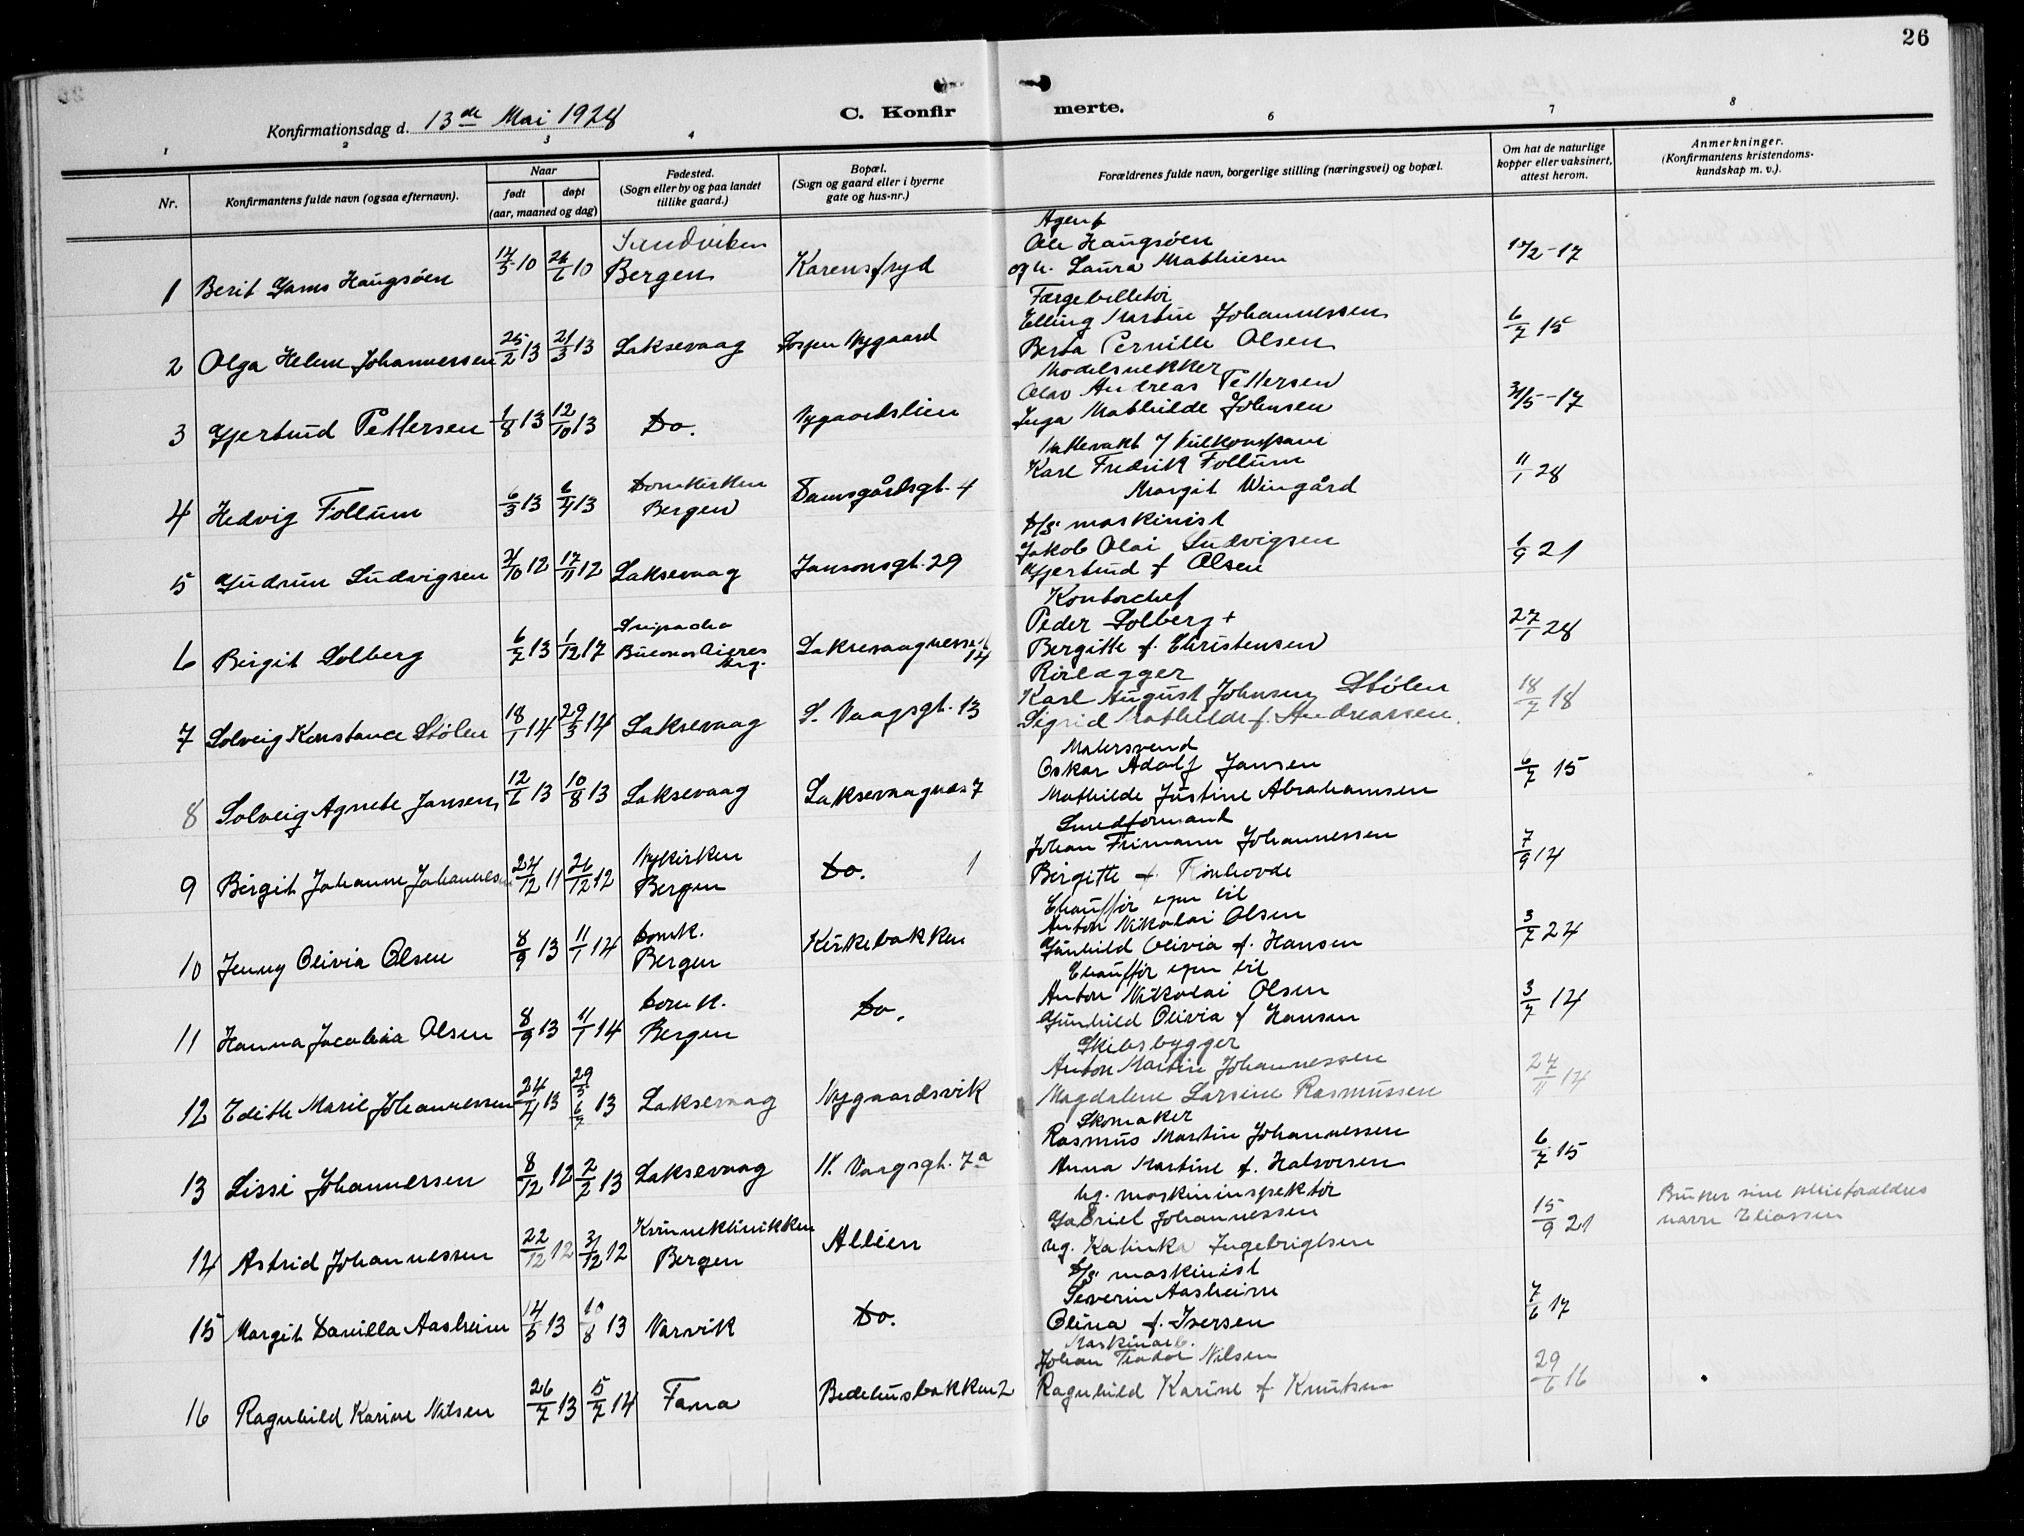 26
Konfirmationsdag d. 13de Mai 1928
C. Konfirmerte.
1 2 3 4 6 7 8
Nr.
Konfirmantens fulde navn (ogsaa efternavn).
Naar
født døpt
(aar, maaned og dag)
Fødested.
(Sogn eller by og paa landet
tillike gaard.)
Bopæl.
(Sogn og gaard eller i byerne
gate og hus-nr.)
Forældrenes fulde navn, borgerlige stilling (næringsvei) og bopæl.
Om hat de naturlige
kopper eller vaksinert,
attest herom.
Anmerkninger.
(Konfirmantens kristendoms-
kundskap m. v.).
Agent
Sandviken Ole Haugsøen
1 Berit Gams Haugsøen 17/5 10 26/6 10 Bergen Karensfryd og h. Laura Mathiesen 17/2-17
Færgebilletør
Elling Martin Johannessen
2 Olga Helene Johannessen 25/2 13 21/3 13 Laksevaag Nygaard Berta Pernille Olsen 6/7 15
Modelsnekker
Olav Andreas Pettersen
3 Gjertrud Pettersen 1/8 13 12/10 13 Do. Nygaardslien Inga Mathilde Johnsen 31/5-17
Nattevakt / kulkompani
Domkirken Karl Fredrik Follum
4 Hedvig Follum 6/3 13 6/4 13 Bergen Damsgårdsgt. 4 Margit Wingård 11/1 28
D/S maskinist
Jakob Olai Ludvigsen
5 Gudrun Ludvigsen 21/10 12 17/11 12 Laksevaag Jansonsgt. 29 Gjertrud f. Olsen 1/9 21
Kontorchef
Peder Solberg +
6 Birgit Solberg 6/7 13 1/12 17 Buenos Aires Arg. Laksevaagnesset 14 Bergitte f. Christensen 27/1 28
Rørlægger
Karl August Johnsen Stølen
7 Solveig Konstance Stølen 18/1 14 29/3 14 Laksevaag S. Vaagsgt. 13 Sigrid Mathilde f. Andreassen. 18/7 18
Malersvend
Oskar Adolf Jansen
8 Solveig Agnete Jansen 12/6 13 10/8 13 Laksevaag Laksevaagnes 7 Mathilde Justine Abrahamsen 6/7 15
Smedformand
Nykirken Johan Frimann Johannessen
9 Birgit Johanne Johannessen 24/12 11 26/12 12 Bergen Do. 1 Birgitte f. Trønhovde 7/9 14
Chauffør egen bil
Domk. Anton Nikolai Olsen
10 Jenny Olivia Olsen 8/9 13 11/1 14 Bergen Kirkebakken Gunhild Olivia f. Hansen 3/7 24
Chauffør egen bil
Domk. Anton Nikolai Olsen
11 Hanna Jacobia Olsen 8/9 13 11/1 14 Bergen Do. Gunhild Olivia f Hansen 3/7 14
Skibsbygger
29/5 Anton Martin Johannessen
12 Edith Marie Johannessen 24/4 13 6/7 13 Laksevaag Nygaardsvik Magdalene Larsine Rasmussen 27/11 14
Skomaker
Rasmus Martin Johannessen
13 Lissi Johannessen 8/12 12 2/2 13 Laksevaag N. Vaagsgt. 7a Anna Martine f. Halvorsen 6/7 15
Ug. maskininspektør
Kvinneklinikken Gabriel Johannessen
14 Astrid Johannessen 22/12 12 31/12 12 Bergen Alleen ug. Katinka Ingebrigtsen 15/9 21 Bruker sine pleieforældres
navn Eliassen
D/S maskinist
Severin Aasheim
15 Margit Danilla Aasheim 14/5 13 10/8 13 Narvik Do. Olina f. Iversen 7/6 17
Maskinarb.
Johan Teodor Nilsen
16 Ragnhild Karine Nilsen 26/7 13 5/7 14 Fana Bedehusbakken 2 Ragnhild Karine f Knutsen 29/6 16